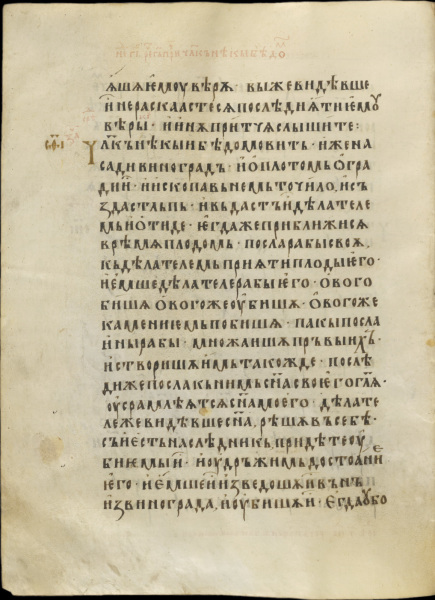 ꙗшѧ ѥмоу вѣрѫ · вы же видѣвше
и не раскаастесѧ послѣди ѧти ѥмоу
вѣры · и инѫ притъчѫ слышите :
чл҃къ нѣкыи бѣ домовитъ · иже на
сади виноградъ · и оплотомь огра
ди и · и ископа въ немь точило · и съ
зда стлъпь · и въдасть и дѣлателе
мь и отиде · ѥгда же приближисѧ
врѣмѧ плодомъ · посла рабы своѧ ·
къ дѣлателемь приѧти плоды ѥго ·
и ѥмше дѣлателе рабы ѥго · ового
бишѧ ового же оубишѧ · ового же
камениемь побишѧ · пакы посла
ины рабы · множаишѧ прьвыихъ ·
и створишѧ имь такожде · послѣ
диже посла къ нимь сн҃а своѥго гл҃ѧ ·
оусрамлѣѭтсѧ сн҃а моего · дѣлате
ле же видѣвше сн҃а · рѣшѧ въ себѣ ·
сь ѥсть наслѣдникъ придѣте оу
биѥмь и · и оудръжимь достоание
ѥго · и ѥмше и изведошѧ и вънъ
из винограда · и оубишѧ и · Егда оубо